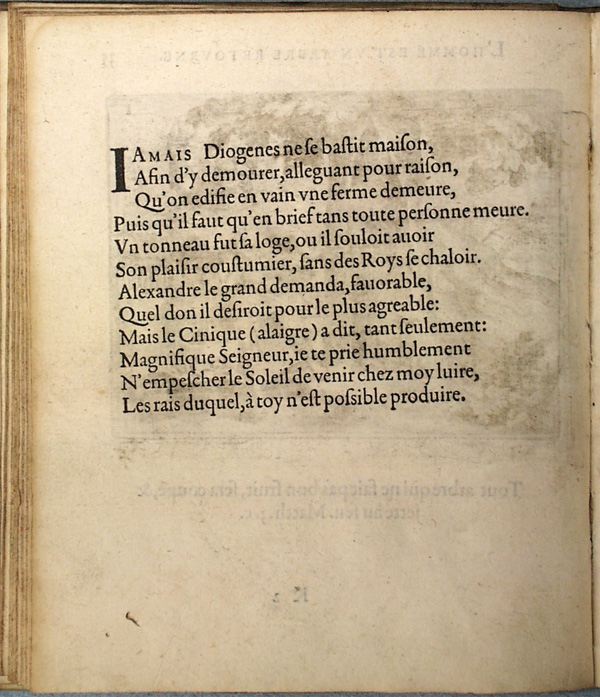 IAMAIS Diogenes ne se bastit maiſon,
Afin d'y demourer, alleguant pour raiſon,
Qu'on edifie en vain vne ferme demeure,
Puis qu'il faut qu'en brief tans toute perſonne meure.
Vn tonneau fut ſa loge, ou il ſouloit auoir
Son plaiſir couſtumier, ſans des Roys ſe chaloir.
Alexandre le grand demanda, fauorable,
Quel don il deſiroit pour le plus agreable:
Mais le Cinique (alaigre) a dit, tant ſeulement:
Magnifique Seigneur, ie te prie humblement
N'empeſcher le Soleil de venir chez moy luire,
Les rais duquel, à toy n'eſt poſsible produire.